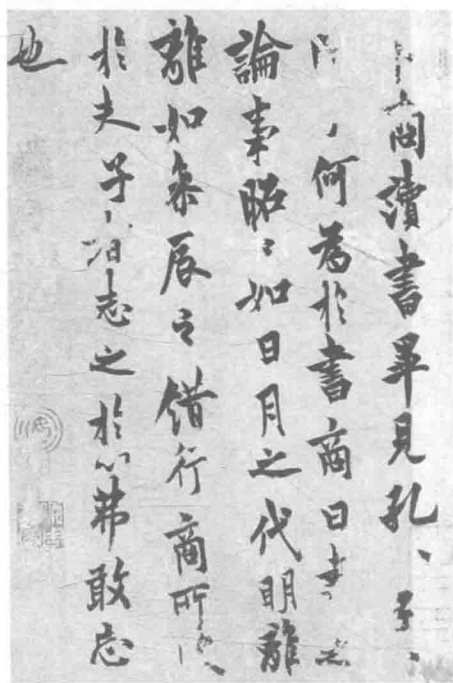 商讀書畢見孔子
何為於書商曰書
論事昭〻如日月之代明離
離如參辰之錯行商所
於夫子志之於心弗敢忘
也